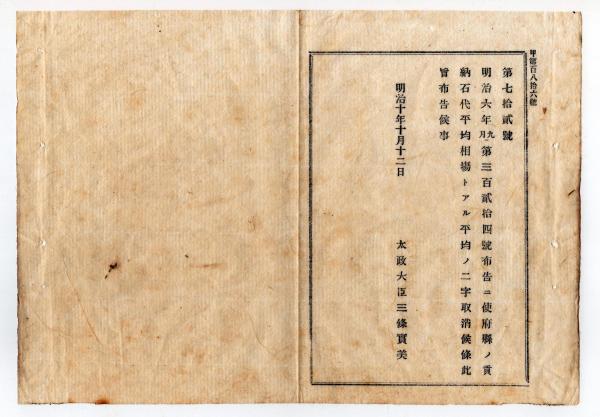 甲第百八拾六號
第七拾貳號
明治六年九月第三百貳拾四號布告ニ使府縣ノ貢
納石代平均相場トアル平均ノ二字取消候條此
旨布告候事
明治十年十月十二日
太政大臣三條實美